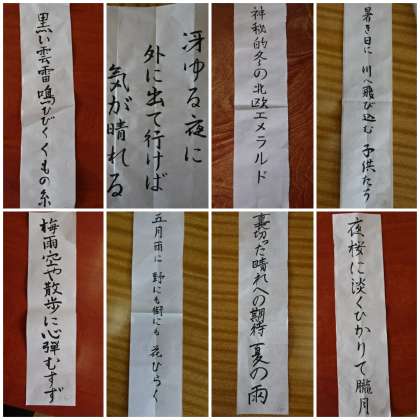 黒い雲雷鳴ひびくくもの糸
冴ゆる夜に
外に出て行けば
気が晴れる
神秘的冬の北欧エメラルド
暑き日に 川へ飛び込む 子供たち
梅雨空や散歩に心弾むすず
五月雨に 野にも街にも 花ひらく
裏切った晴れへの期待夏の雨
夜桜に淡くひかりて朧月